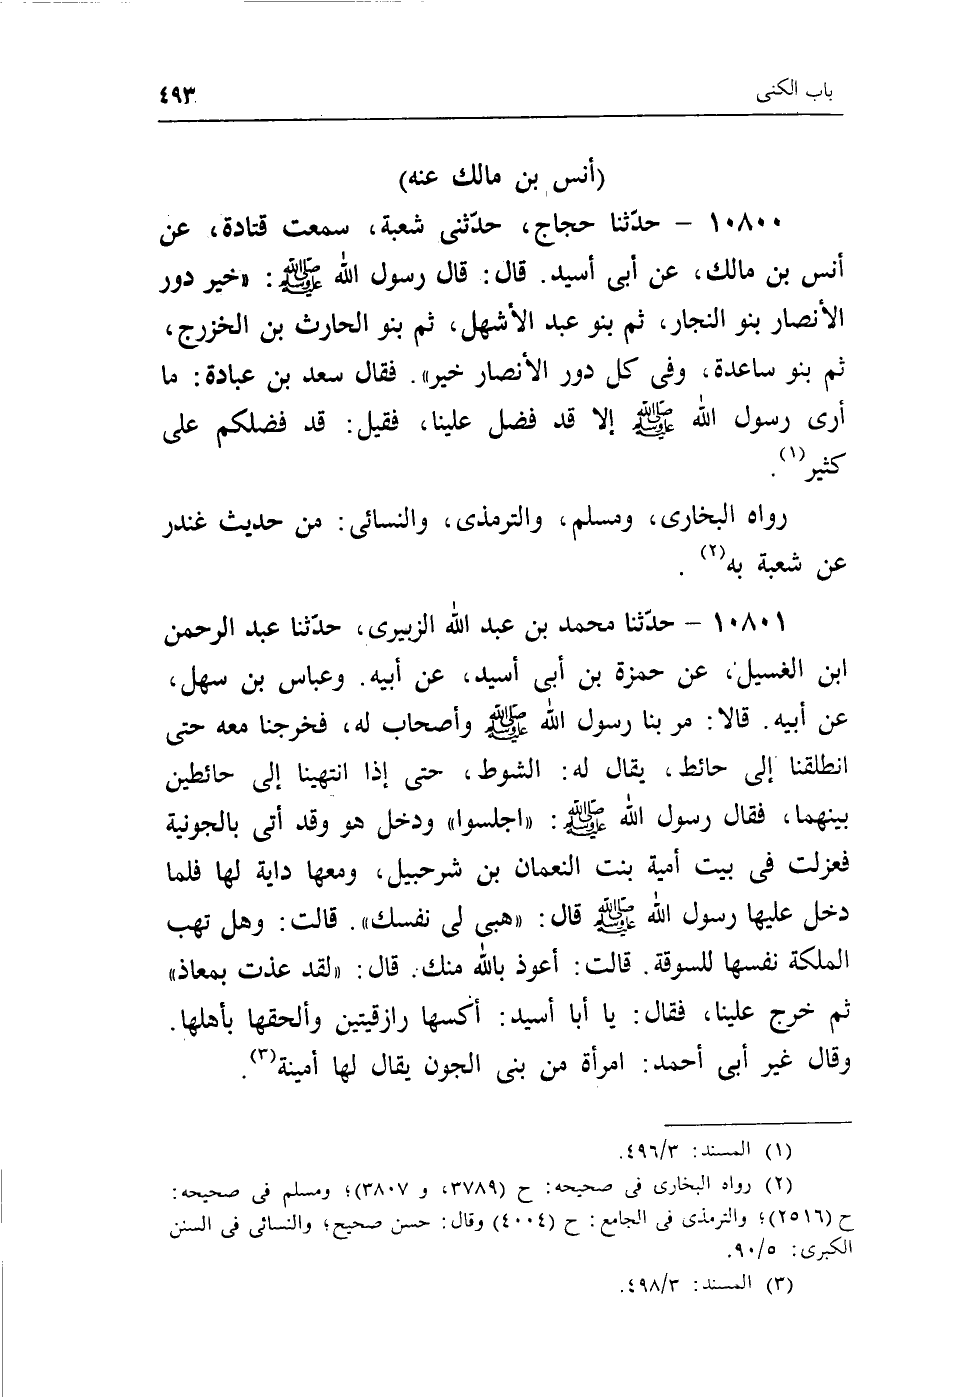 باب الكنى ٤٩٣
(أنس بن مالك عنه)
١٠٨٠٠ – حدّثنا حجاج، حدّثنى شعبة، سمعت قتادة، عن
أنس بن مالك، عن أبى أسيد. قال: قال رسول الله ﷺ: «خير دور
الأنصار بنو النجار، ثم بنو عبد الأشهل، ثم بنو الحارث بن الخزرج،
ثم بنو ساعدة، وفى كل دور الأنصار خير». فقال سعد بن عبادة: ما
أرى رسول الله ﷺ إلا قد فضل علينا، فقيل: قد فضلكم على
كثير(١).
رواه البخارى، ومسلم، والترمذى، والنسائى: من حديث غندر
عن شعبة به(٢).
١٠٨٠١ – حدّثنا محمد بن عبد الله الزبيرى، حدّثنا عبد الرحمن
ابن الغسيل، عن حمزة بن أبى أسيد، عن أبيه. وعباس بن سهل،
عن أبيه. قالا: مر بنا رسول الله ﷺ وأصحاب له، فخرجنا معه حتى
انطلقنا إلى حائط، يقال له: الشوط، حتى إذا انتهينا إلى حائطين
بينهما، فقال رسول الله ﷺ: «اجلسوا» ودخل هو وقد أتى بالجونية
فعزلت فى بيت أمية بنت النعمان بن شرحبيل، ومعها داية لها فلما
دخل عليها رسول الله ﷺ قال: «هبى لى نفسك». قالت: وهل تهب
الملكة نفسها للسوقة. قالت: أعوذ بالله منك. قال: «لقد عذت بمعاذ»
ثم خرج علينا، فقال: يا أبا أسيد: أكسها رازقيتين وألحقها بأهلها.
وقال غير أبى أحمد: امرأة من بنى الجون يقال لها أمينة(٣).
(١) المسند: ٤٩٦/٣.
(٢) رواه البخارى فى صحيحه: ح (٣٧٨٩، و ٣٨٠٧)؛ ومسلم فى صحيحه:
ح (٢٥١٦)؛ والترمذى فى الجامع: ح (٤٠٠٤) وقال: حسن صحيح؛ والنسائى فى السنن
الكبرى: ٩٠/٥.
(٣) المسند: ٤٩٨/٣.